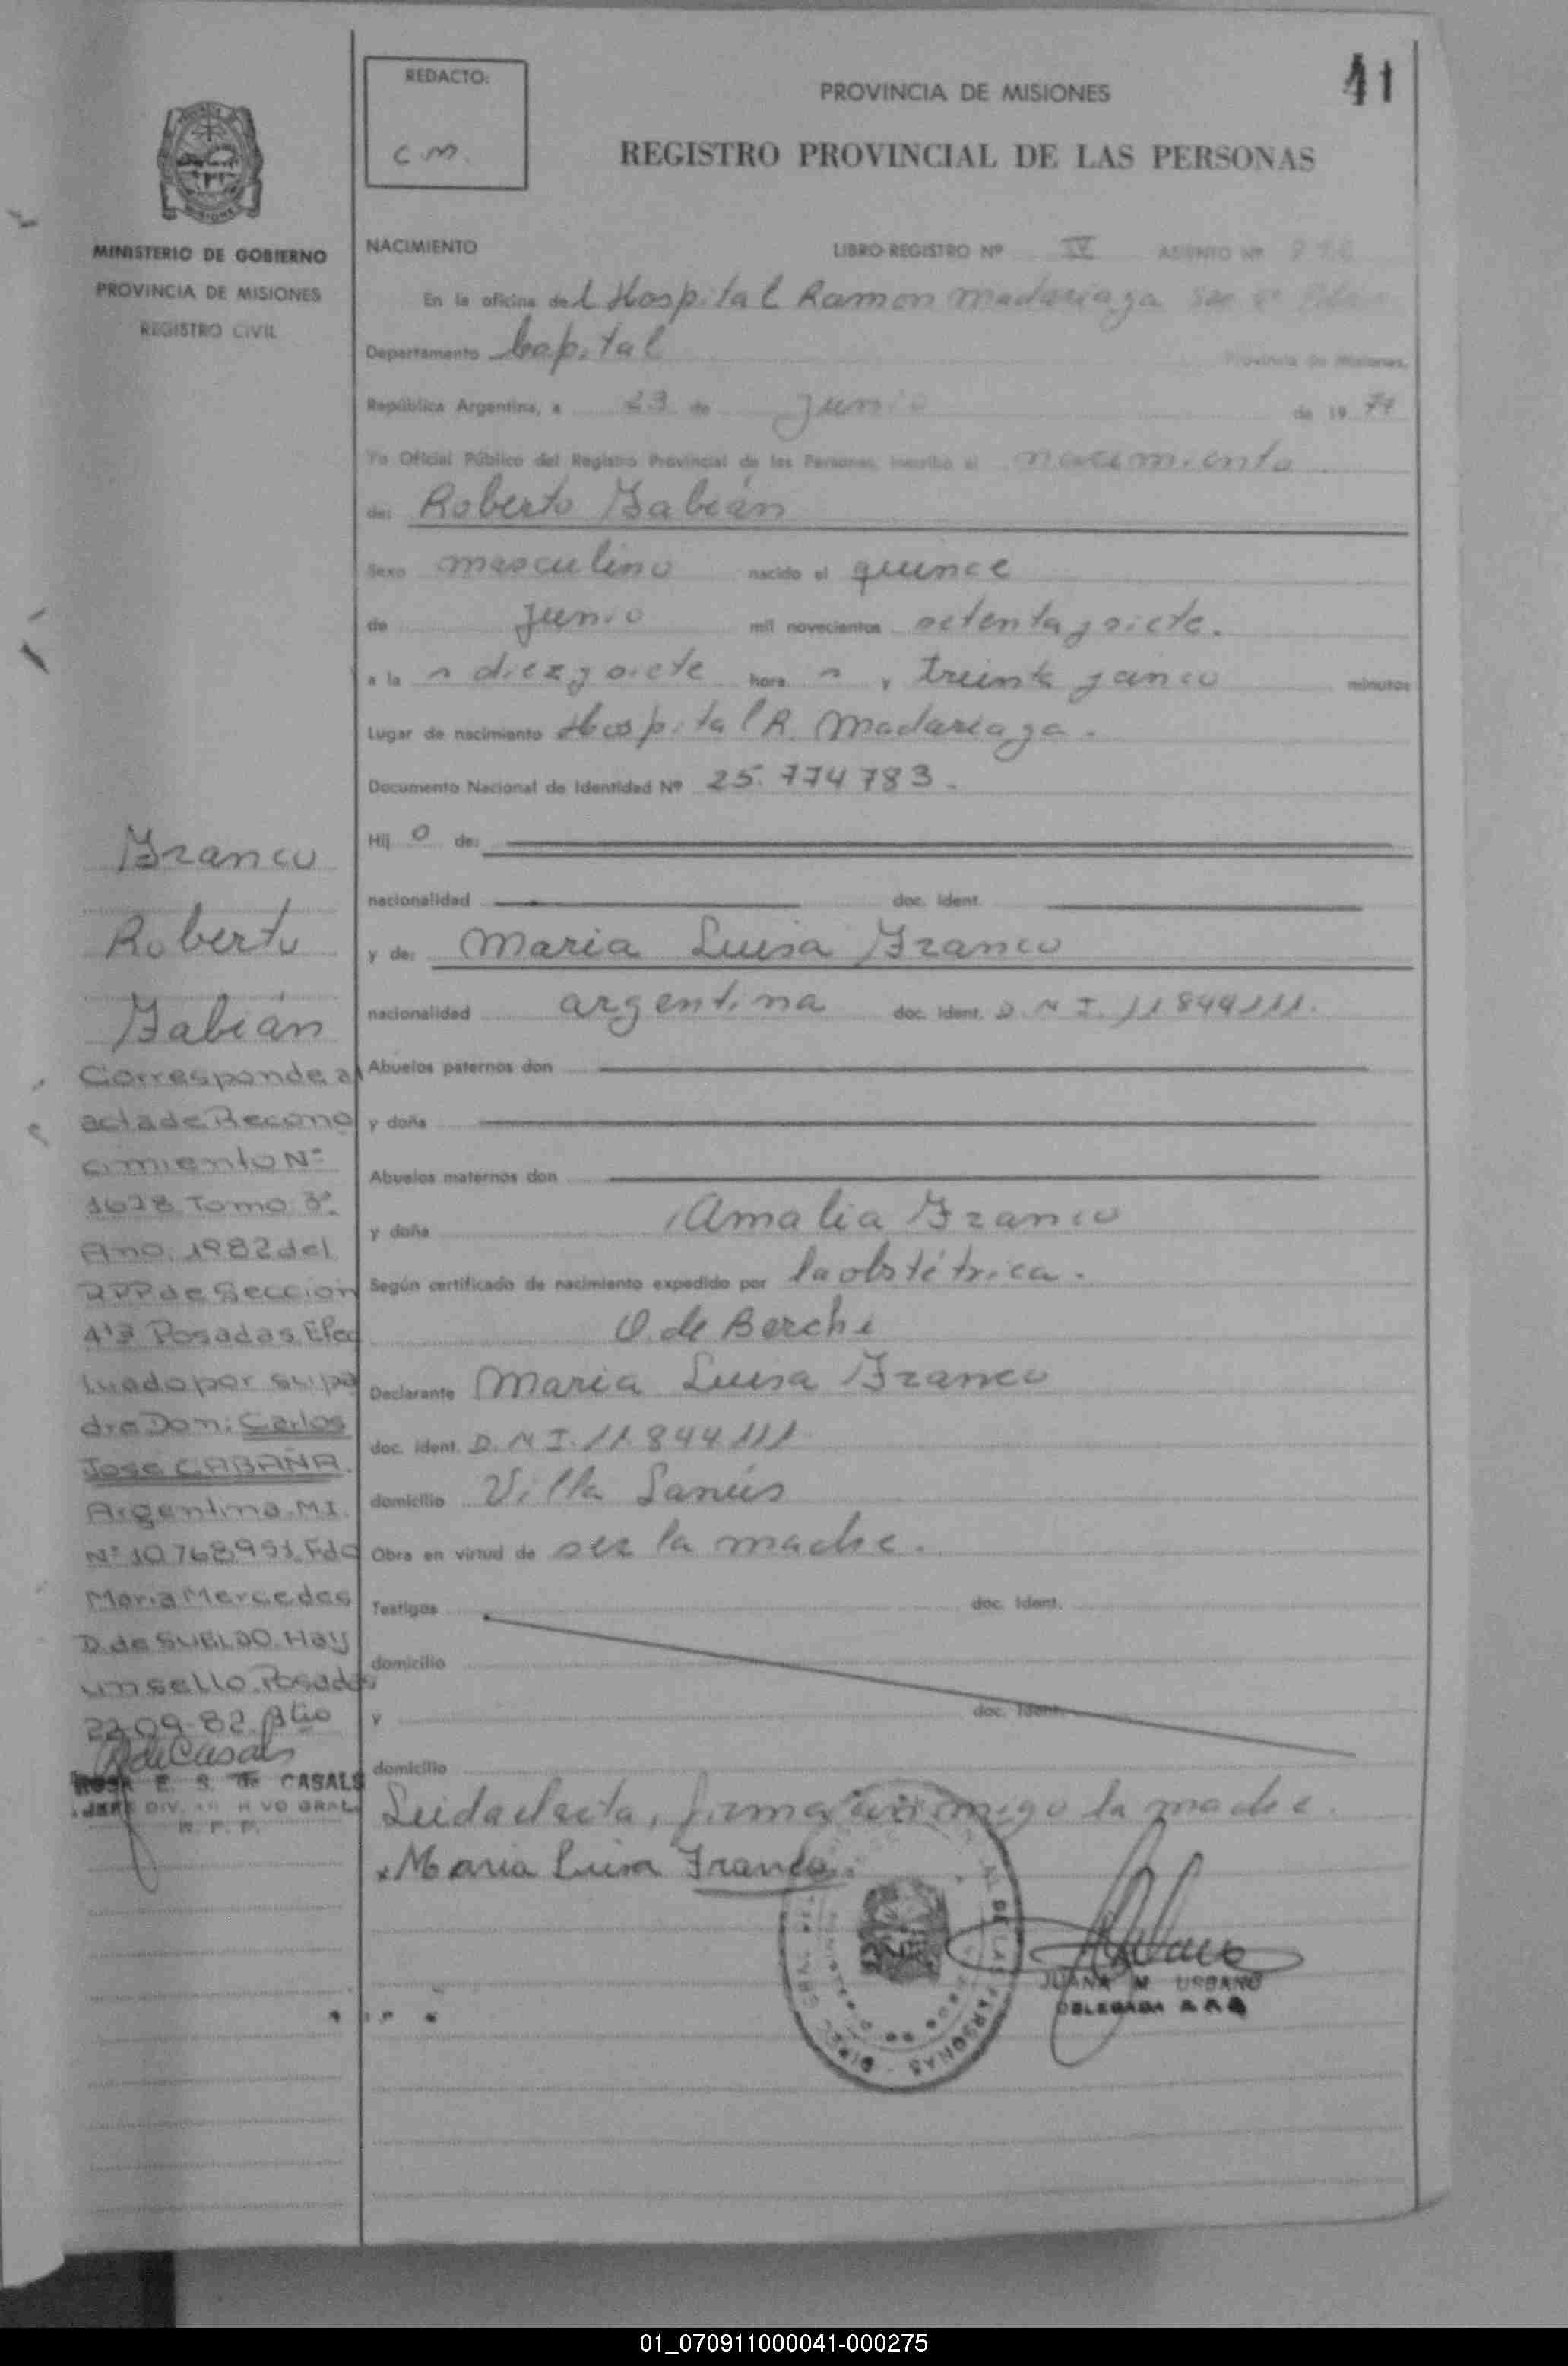 41
REDACTO:
C.M.
PROVINCIA DE MISIONES
REGISTRO PROVINCIAL DE LAS PERSONAS
MINISTERIO DE GOBIERNO
PROVINCIA DE MISIONES
REGISTRO CIVIL
NACIMIENTO LIBRO-REGISTRO Nº IV ASIENTO Nº
En la oficina del Hospital Ramon Madariaga
Departamento Capital Provincia de Misiones,
República Argentina, a 23 de Junio de 19 77
Yo Oficial Público del Registro Provincial de las Personas, inscribo el nacimiento
de: Roberto Fabián
Sexo masculino nacido el quince
de Junio mil novecientos setenta y siete.
a la s diez y siete hora s y treinta y cinco minutos
Lugar de nacimiento Hospital R. Madariaga.
Documento Nacional de Identidad Nº 25.774783.
Hij o de:
nacionalidad doc. ident.
y de: Maria Luisa Franco
nacionalidad argentina doc. ident. D.N.I. 11844111.
Abuelos paternos don
y doña
Abuelos maternos don
y doña Amalia Franco
Según certificado de nacimiento expedido por la obstétrica.
O. de Berchi
Declarante Maria Luisa Franco
doc. ident. D.N.I. 11.844111
domicilio Villa Lanús
Obra en virtud de ser la madre.
Testigos doc. ident.
domicilio
y doc. ident.
domicilio
Leida el acta, firma conmigo la madre.
x Maria Luisa Franco.
JUANA M. URBANO
DELEGADA
Franco
Roberto
Fabián
Corresponde al
acta de Recono
cimiento Nº
1628 Tomo 3º
Año 1982 del
RPP de Seccion
4ª Posadas Efec
tuado por su pa
dre Don: Carlos
José CABAÑA.
Argentino. M.I.
Nº 10768951. Fdo
Maria Mercedes
D. de SUELDO. Hay
un sello. Posadas
22-09-82.
ROSA E. S. de CASALS
JEFE DIV. ARCHIVO GRAL.
R. P. P.
01_070911000041-000275